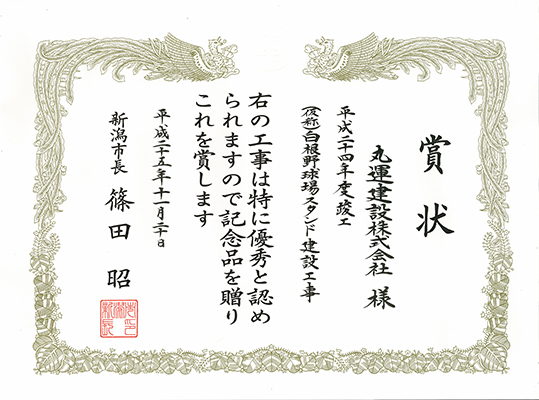 賞状
丸運建設株式会社 様
平成二十四年度竣工
(仮称)白根野球場スタンド建設工事
右の工事は特に優秀と認め
られますので記念品を贈り
これを賞します
平成二十五年十一月二十日
新潟市長 篠田 昭